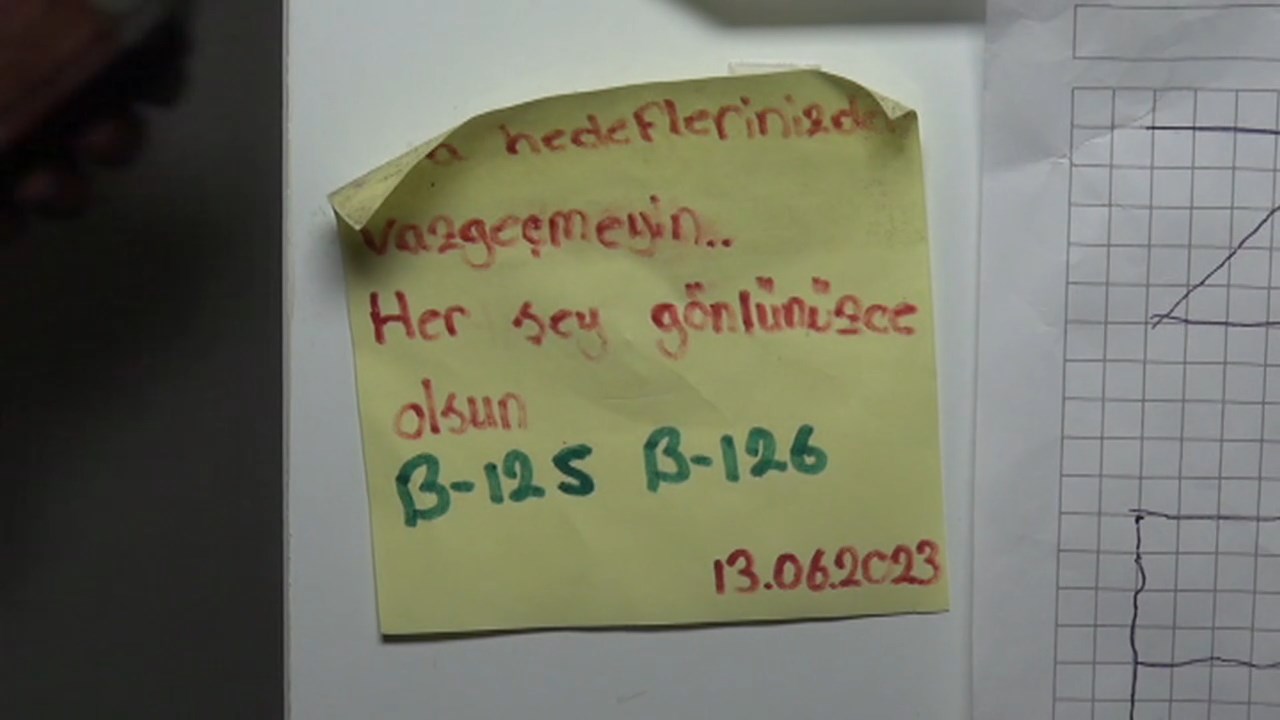 a hedeflerinizde
vazgeçmeyin..
Her şey gönlünüzce
olsun
B-125 B-126
13.06.2023